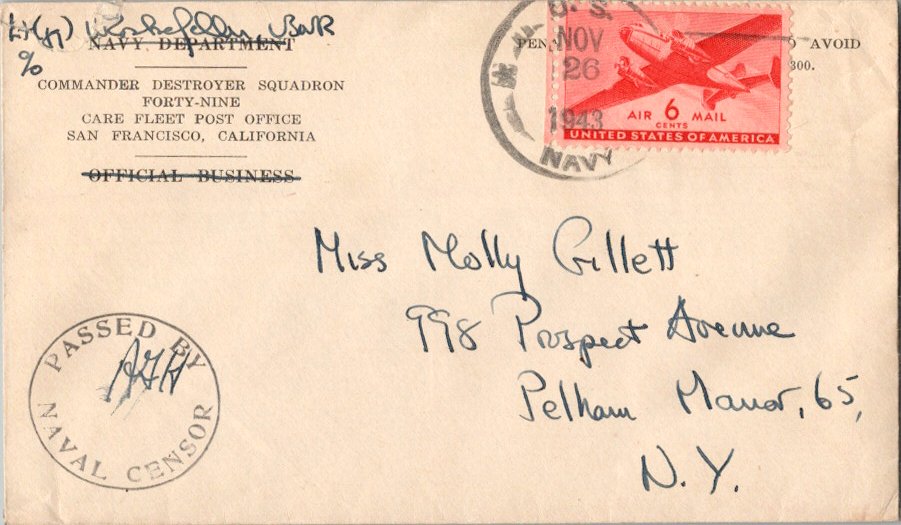 Lt(jg)
NAVY DEPARTMENT
c/o
COMMANDER DESTROYER SQUADRON
FORTY-NINE
CARE FLEET POST OFFICE
SAN FRANCISCO, CALIFORNIA
OFFICIAL BUSINESS
U. S.
NOV
26
1943
NAVY
PEN
AVOID
300.
AIR 6 MAIL
CENTS
UNITED STATES OF AMERICA
Miss Molly Gillett
998 Prospect Avenue
Pelham Manor, 65,
N.Y.
PASSED BY
NAVAL CENSOR